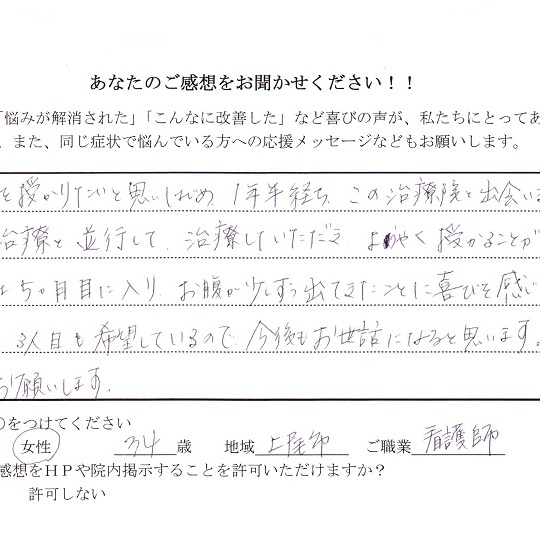 あなたのご感想をお聞かせください！！
「悩みが解消された」「こんなに改善した」など喜びの声が、私たちにとってあ
。また、同じ症状で悩んでいる方への応援メッセージなどもお願いします。
を授かりたいと思いはじめ、1年半経ち、この治療院と出会いま
治療と並行して、治療していただき、ようやく授かることが
5ヶ月目に入り、お腹が少しずつ出てきたことに喜びを感じ
3人目も希望しているので、今後もお世話になると思います。
お願いします。
○をつけてください
女性 34 歳 地域 上尾市 ご職業 看護師
感想をＨＰや院内掲示することを許可いただけますか？
許可しない